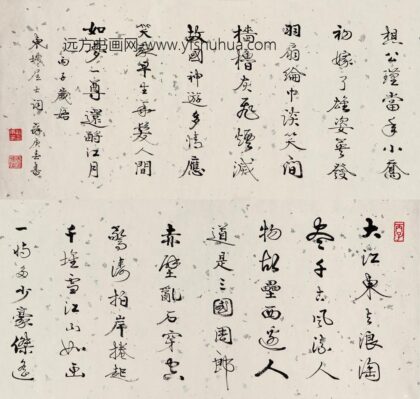 远方书画网 www.yfshuhua.com
大江東去浪淘
盡千古風流人
物故壘西邊人
道是三國周郎
赤壁亂石穿空
驚濤拍岸捲起
千堆雪江山如画
一時多少豪傑遙
想公瑾當年小喬
初嫁了雄姿英發
羽扇綸巾談笑間
檣櫓灰飛煙滅
故國神遊多情應
笑我早生華髮人間
如夢一尊還酹江月
丙子歲始
東坡居士詞